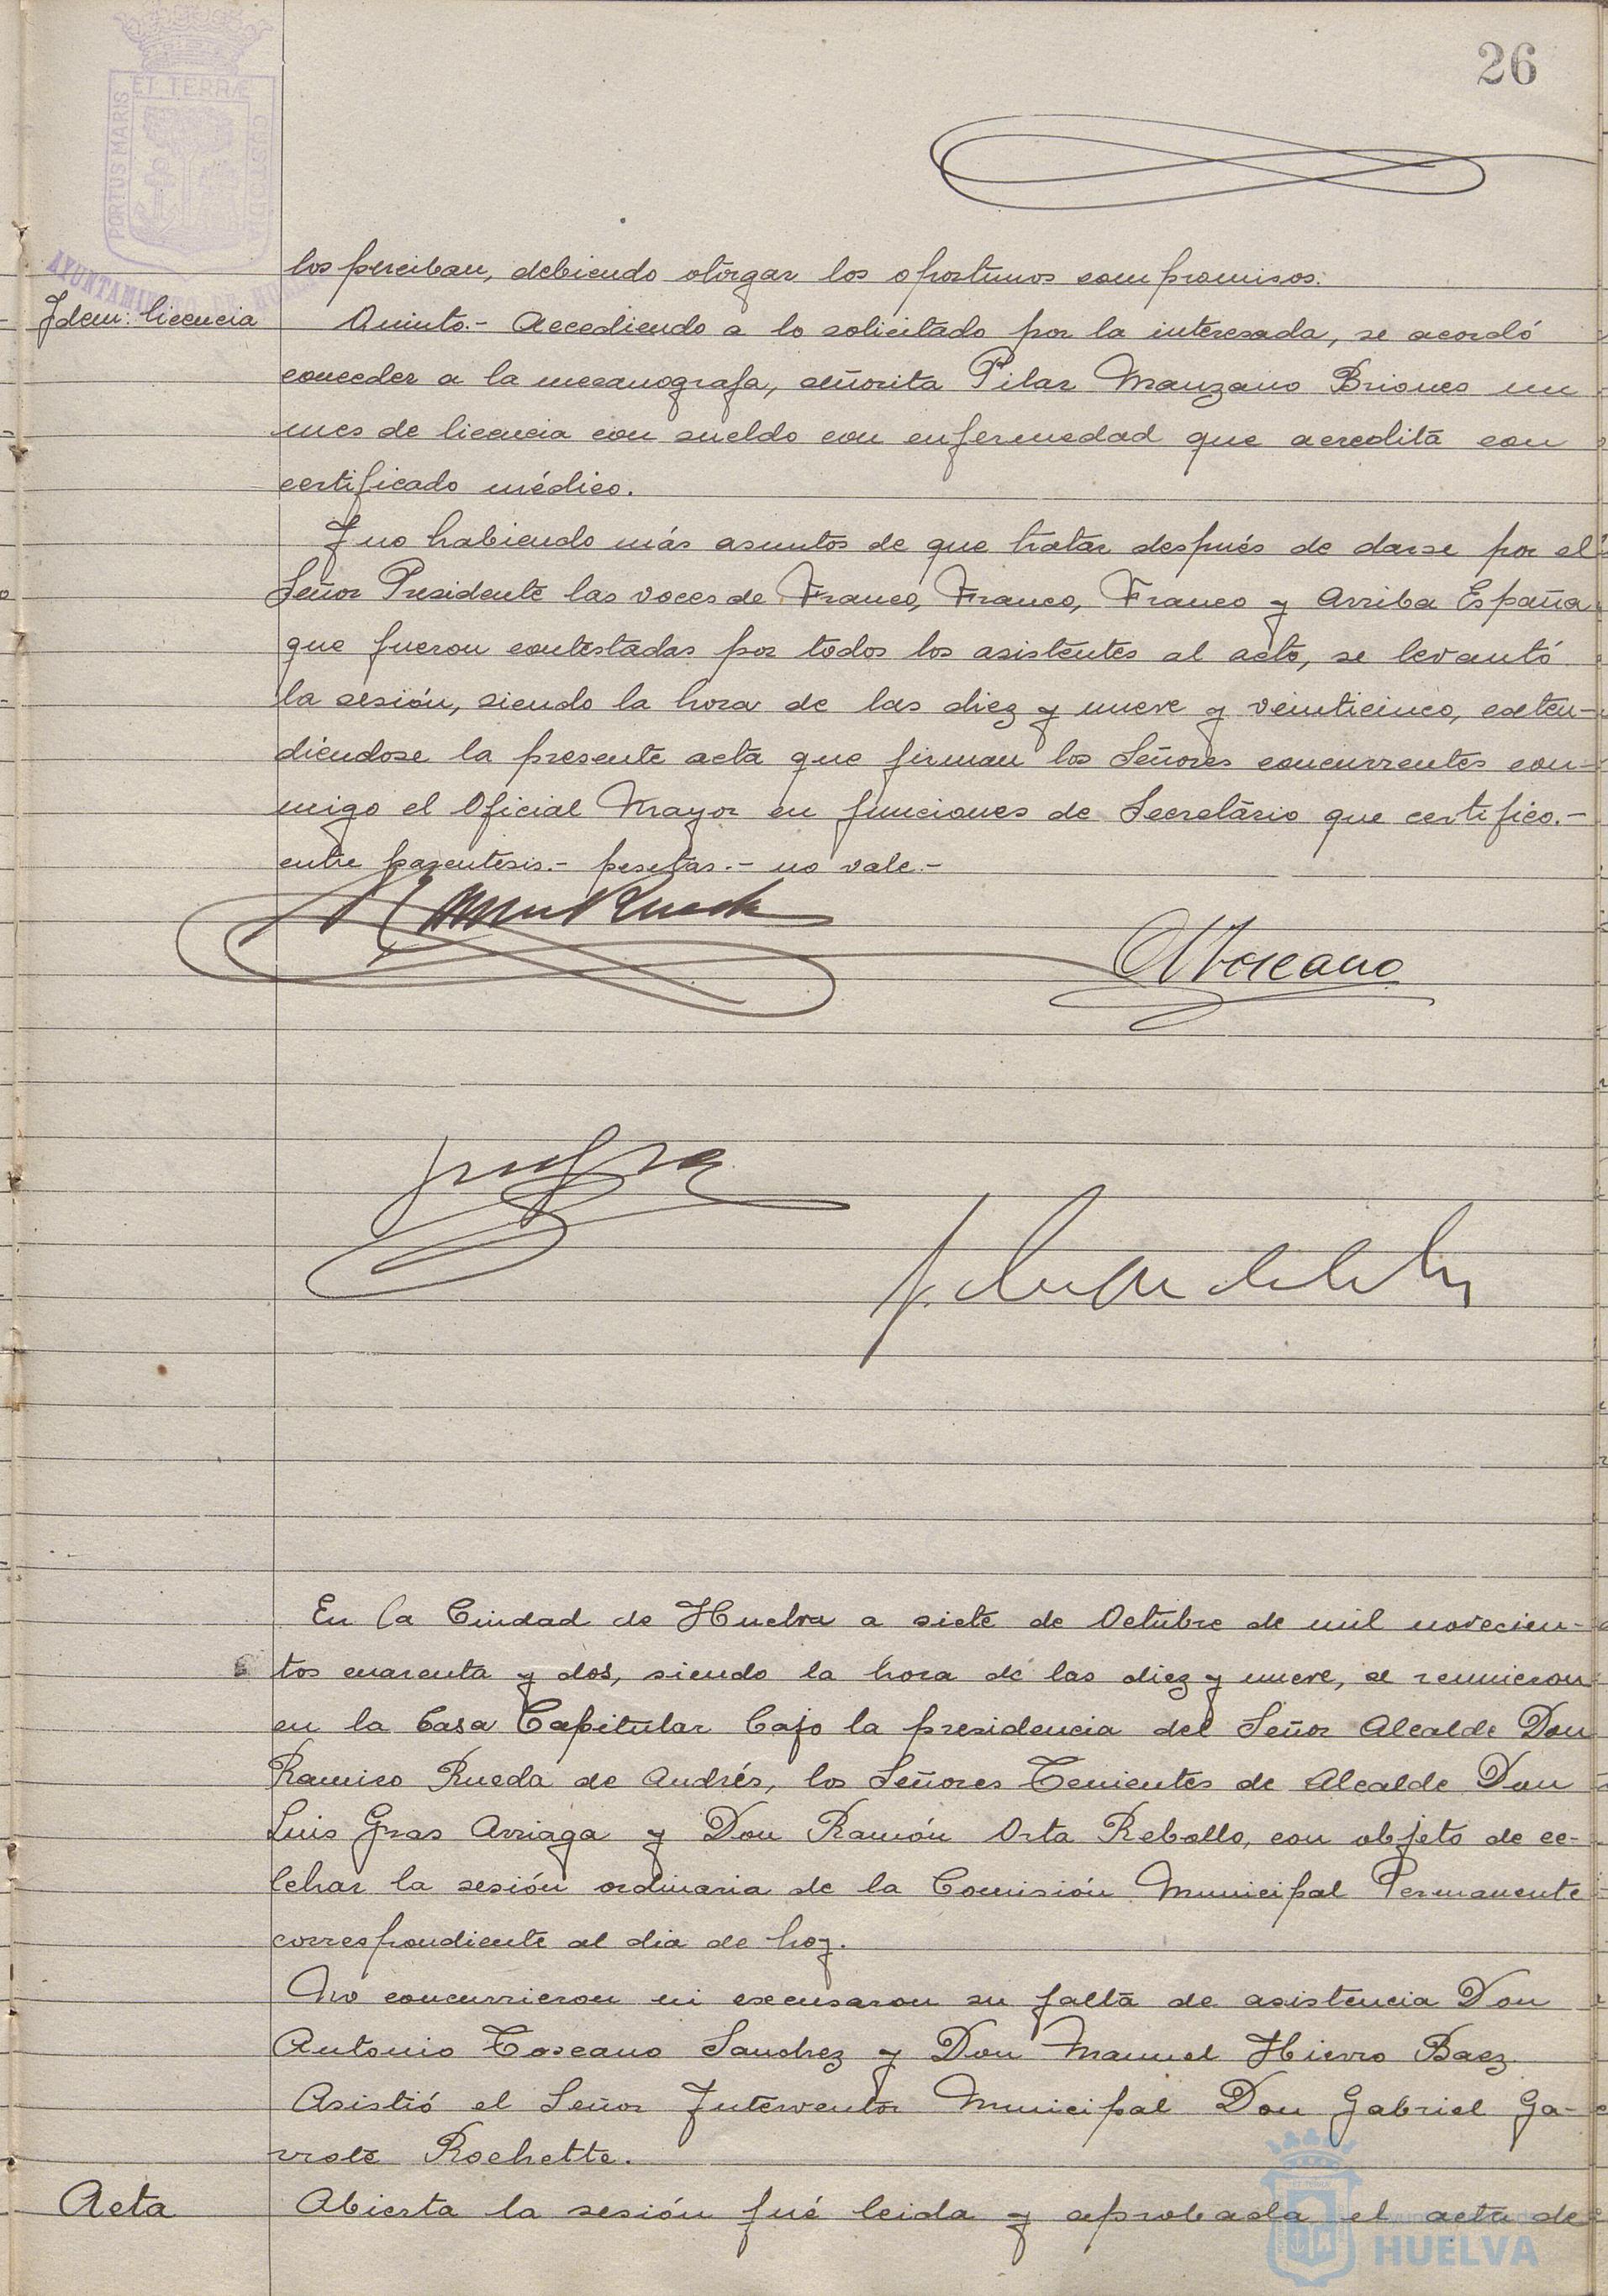 26
PORTUS MARIS
ET TERRÆ
CUSTODIA
AYUNTAMIENTO DE HUELVA
los perciban, debiendo otorgar los oportunos compromisos.
Idem: licencia
Quinto.- Accediendo a lo solicitado por la interesada, se acordó
conceder a la mecanografa, señorita Pilar Manzano Briones un
mes de licencia con sueldo con enfermedad que acredita con
certificado médico.
Y no habiendo más asuntos de que tratar después de darse por el
Señor Presidente las voces de Franco, Franco, Franco y Arriba España
que fueron contestadas por todos los asistentes al acto, se levantó
la sesión, siendo la hora de las diez y nueve y veinticinco, exten-
diéndose la presente acta que firman los Señores concurrentes con-
migo el Oficial Mayor en funciones de Secretário que certifico.-
entre parentesis.- pesetas.- no vale.-
Toscano
En la Ciudad de Huelva a siete de Octubre de mil novecien-
tos cuarenta y dos, siendo la hora de las diez y nueve, se reunieron
en la Casa Capitular bajo la presidencia del Señor Alcalde Don
Ramiro Rueda de Andrés, los Señores Tenientes de Alcalde Don
Luis Gras Arriaga y Don Ramón Orta Rebollo, con objeto de ce-
lebrar la sesión ordinaria de la Comisión Municipal Permanente
correspondiente al dia de hoy.
No concurrieron ni excusaron su falta de asistencia Don
Antonio Toscano Sanchez y Don Manuel Hierro Baez.
Asistió el Señor Interventor Municipal Don Gabriel Ga-
vrote Rochette.
Acta
Abierta la sesión fué leida y aprobada el acta de
HUELVA